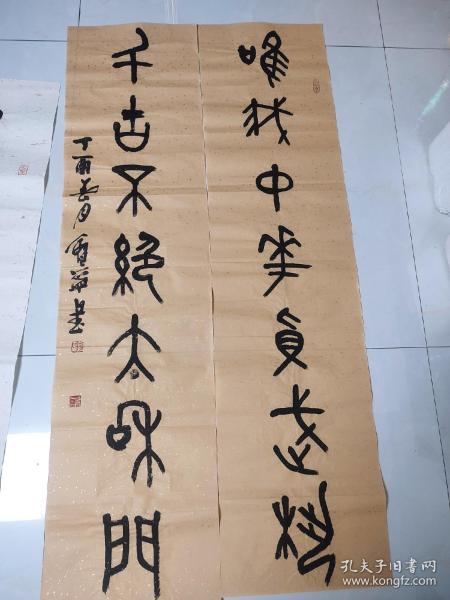 唯我中華武
千古不絕太和門
丁酉春月
孔夫子旧书网
www.kongfz.com